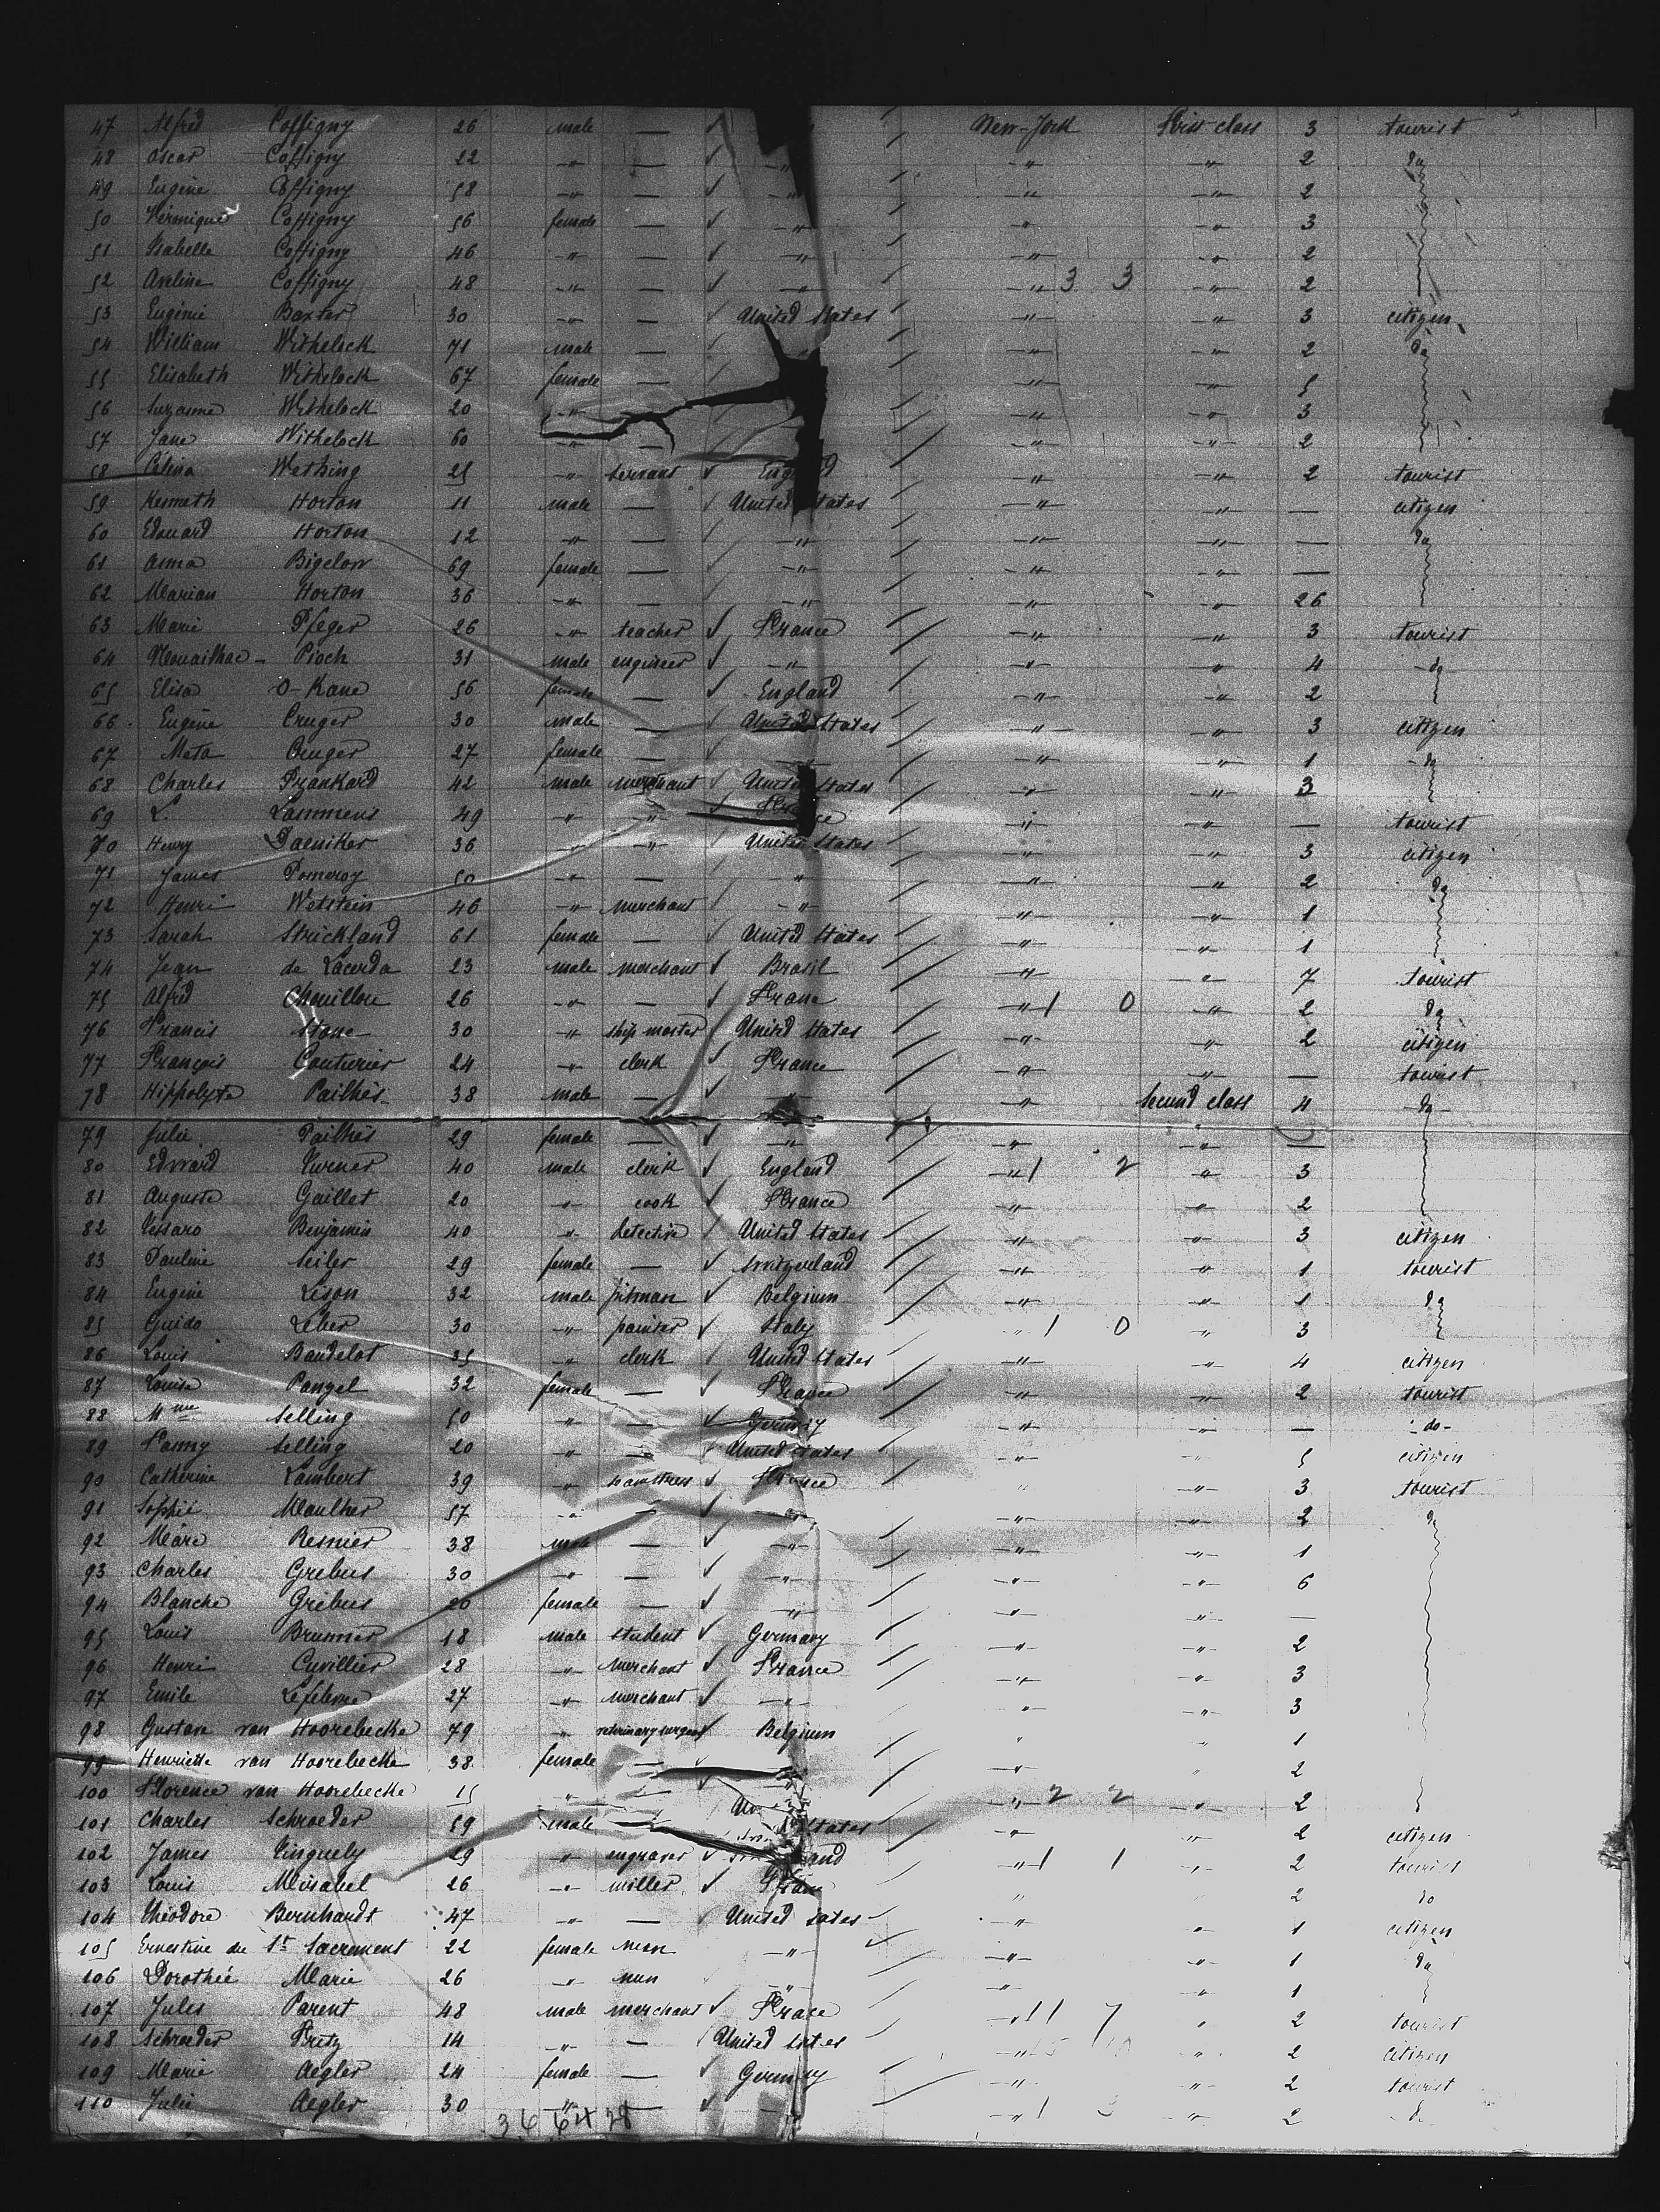 47 Alfred Coffigny 26 male — ✓ New-York First class 3 tourist
48 Oscar Coffigny 22 -"- — ✓ -"- -"- -"- 2 do
49 Eugène Coffigny 58 -"- — ✓ -"- -"- -"- 2
50 Coffigny 56 female — ✓ -"- -"- -"- 3
51 Isabelle Coffigny 46 -"- — ✓ -"- -"- -"- 2
52 Aveline Coffigny 48 -"- — ✓ -"- -"- 3 3 -"- 2
53 Eugénie Baxter 30 -"- — ✓ United States -"- -"- 3 citizen
54 William Withelock 71 male — ✓ -"- -"- 2 do
55 Elisabeth Withelock 67 female — ✓ -"- -"- 5
56 Suzanne Withelock 20 -"- -"- -"- 3
57 Jane Withelock 60 -"- — -"- -"- 2
58 Celina Wathing 25 -"- servant ✓ England -"- -"- 2 tourist
59 Kenneth Horton 11 male — ✓ United States -"- -"- — citizen
60 Edouard Horton 12 -"- — ✓ -"- -"- -"- — do
61 Anna Bigelow 69 female — ✓ -"- -"- -"- —
62 Marian Horton 36 -"- — ✓ -"- -"- -"- 26
63 Marie Pfeger 26 -"- teacher ✓ France -"- -"- 3 tourist
64 Nouailhac - Pioch 31 male engineer ✓ -"- -"- -"- 4 -do
65 Elisa O-Kane 56 female — ✓ England -"- -"- 2
66 Eugène Cruger 30 male — ✓ United States -"- -"- 3 citizen
67 Meta Cruger 27 female — ✓ -"- -"- -"- 1 -do
68 Charles Prankard 42 male merchant ✓ United States -"- -"- 3
69 L. Lammens 49 -"- -"- ✓ France -"- -"- — tourist
70 Henry Daeniker 36 -"- -"- ✓ United States -"- -"- 3 citizen
71 James Pomeroy 50 -"- — ✓ -"- -"- -"- 2 do
72 Henri Wetstein 46 -"- merchant ✓ -"- -"- -"- 1
73 Sarah Strickland 61 female — ✓ United States -"- -"- 1
74 Jean de Lacerda 23 male merchant ✓ Brasil -"- -"- 7 tourist
75 Alfred Chouillou 26 -"- — ✓ France -"- 1 0 -"- 2 do
76 Francis Stone 30 -"- ship master ✓ United States -"- -"- 2 citizen
77 François Couturier 24 -"- clerk ✓ France -"- -"- — tourist
78 Hippolyte Pailhès 38 male — ✓ -"- -"- Second class 4 -do-
79 Julie Pailhès 29 female — ✓ -"- -"- -"- —
80 Edward Turner 40 male clerk ✓ England -"- 1 2 -"- 3
81 Auguste Gaillet 20 -"- cook ✓ France -"- -"- 2
82 Tessaro Benjamin 40 -"- detective ✓ United States -"- -"- 3 citizen
83 Pauline Seiler 29 female — ✓ Switzerland -"- -"- 1 tourist
84 Eugène Lison 32 male pitman ✓ Belgium -"- -"- 1 do
85 Guido Leber 30 -"- painter ✓ Italy -"- 1 0 -"- 3
86 Louis Baudelot 35 -"- clerk ✓ United States -"- -"- 4 citizen
87 Louise Panzel 32 female — ✓ France -"- -"- 2 tourist
88 Mme Selling 50 -"- — ✓ Germany -"- -"- — -do-
89 Fanny Selling 20 -"- — ✓ United States -"- 5 citizen
90 Catherine Lambert 39 -"- seamstress ✓ France -"- -"- 3 tourist
91 Sophie Maulher 57 -"- — ✓ -"- -"- -"- 2 do
92 Marc Resnier 38 male — ✓ -"- -"- -"- 1
93 Charles Grebus 30 -"- — ✓ -"- -"- -"- 6
94 Blanche Grebus 20 female — ✓ -"- -"- -"- —
95 Louis Brunner 18 male student ✓ Germany -"- -"- 2
96 Henri Cuvillier 28 -"- merchant ✓ France -"- -"- 3
97 Emile Lefebvre 27 -"- merchant ✓ -"- -"- -"- 3
98 Gustave van Hoorebecke 79 -"- veterinary surgeon ✓ Belgium -"- -"- 1
99 Henriette van Hoorebecke 38 female — ✓ -"- -"- 2
100 Florence van Hoorebecke 15 -"- — ✓ -"- -"- 2 2 -"- 2
101 Charles Schroeder 59 male — States -"- -"- 2 citizen
102 James Vinguely 29 -"- engraver ✓ -"- 1 1 -"- 2 tourist
103 Louis Mirabel 26 -"- miller ✓ France -"- -"- 2 do
104 Théodore Bernhardt 47 -"- — ✓ United States -"- -"- 1 citizen
105 Ernestine du St Sacrement 22 female nun -"- ✓ -"- -"- 1 do
106 Dorothée Marie 26 -"- nun -"- -"- -"- 1
107 Jules Parent 48 male merchant ✓ France -"- 1 7 -"- 2 tourist
108 Schroeder Fritz 14 -"- — United States -"- -"- 2 citizen
109 Marie Aegler 24 female — ✓ Germany -"- -"- 2 tourist
110 Julie Aegler 30 -"- — ✓ -"- -"- 1 3 -"- 2 -do-
36 64 28